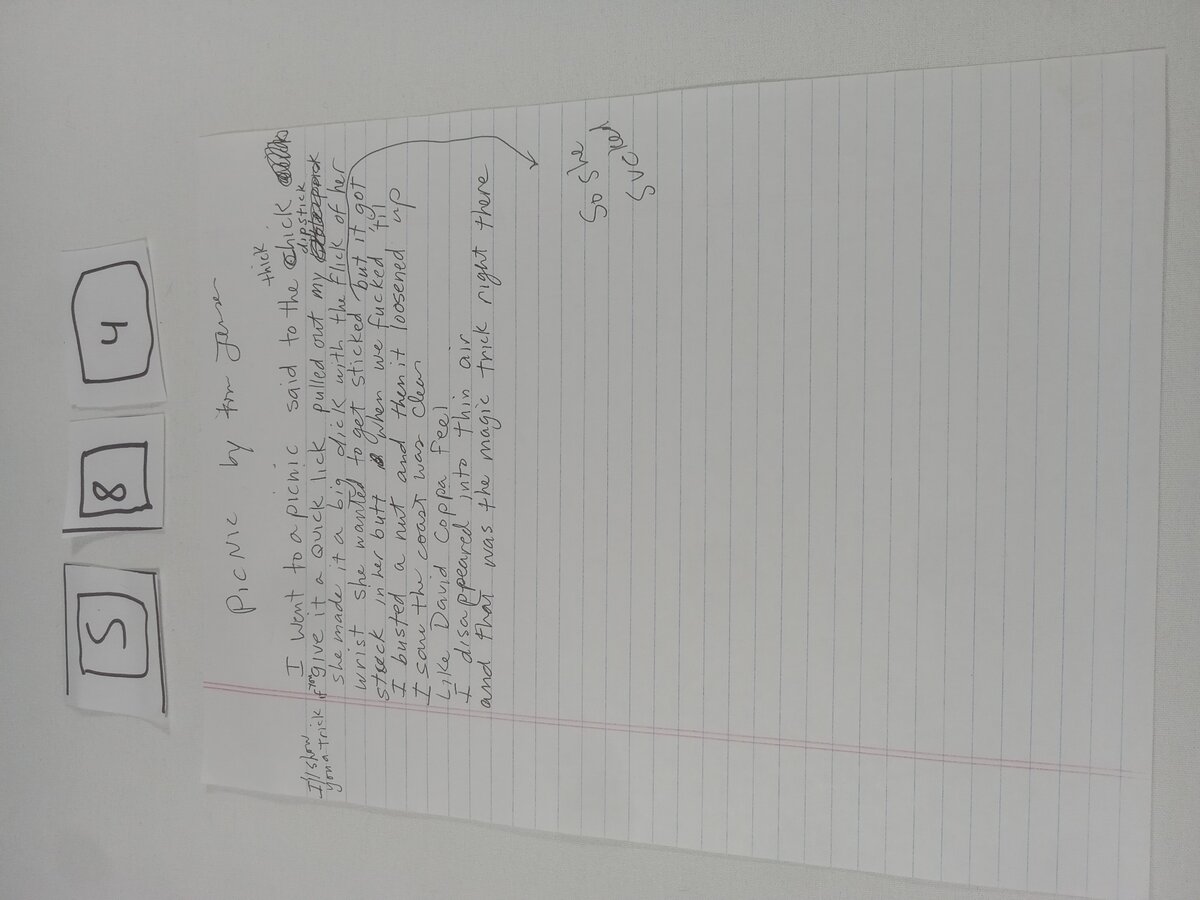 5 8 4
PICNIC by Tom
thick
I went to a picnic said to the chick
dipstick
I'll show
you a trick if you give it a quick lick pulled out my
she made it a big dick with the flick of her
wrist she wanted to get sticked but it got
stuck in her butt when we fucked 'til
I busted a nut and then it loosened up
I saw the coast was clear
Like David Coppa feel
I disappeared into thin air
and that was the magic trick right there
So she
sucked